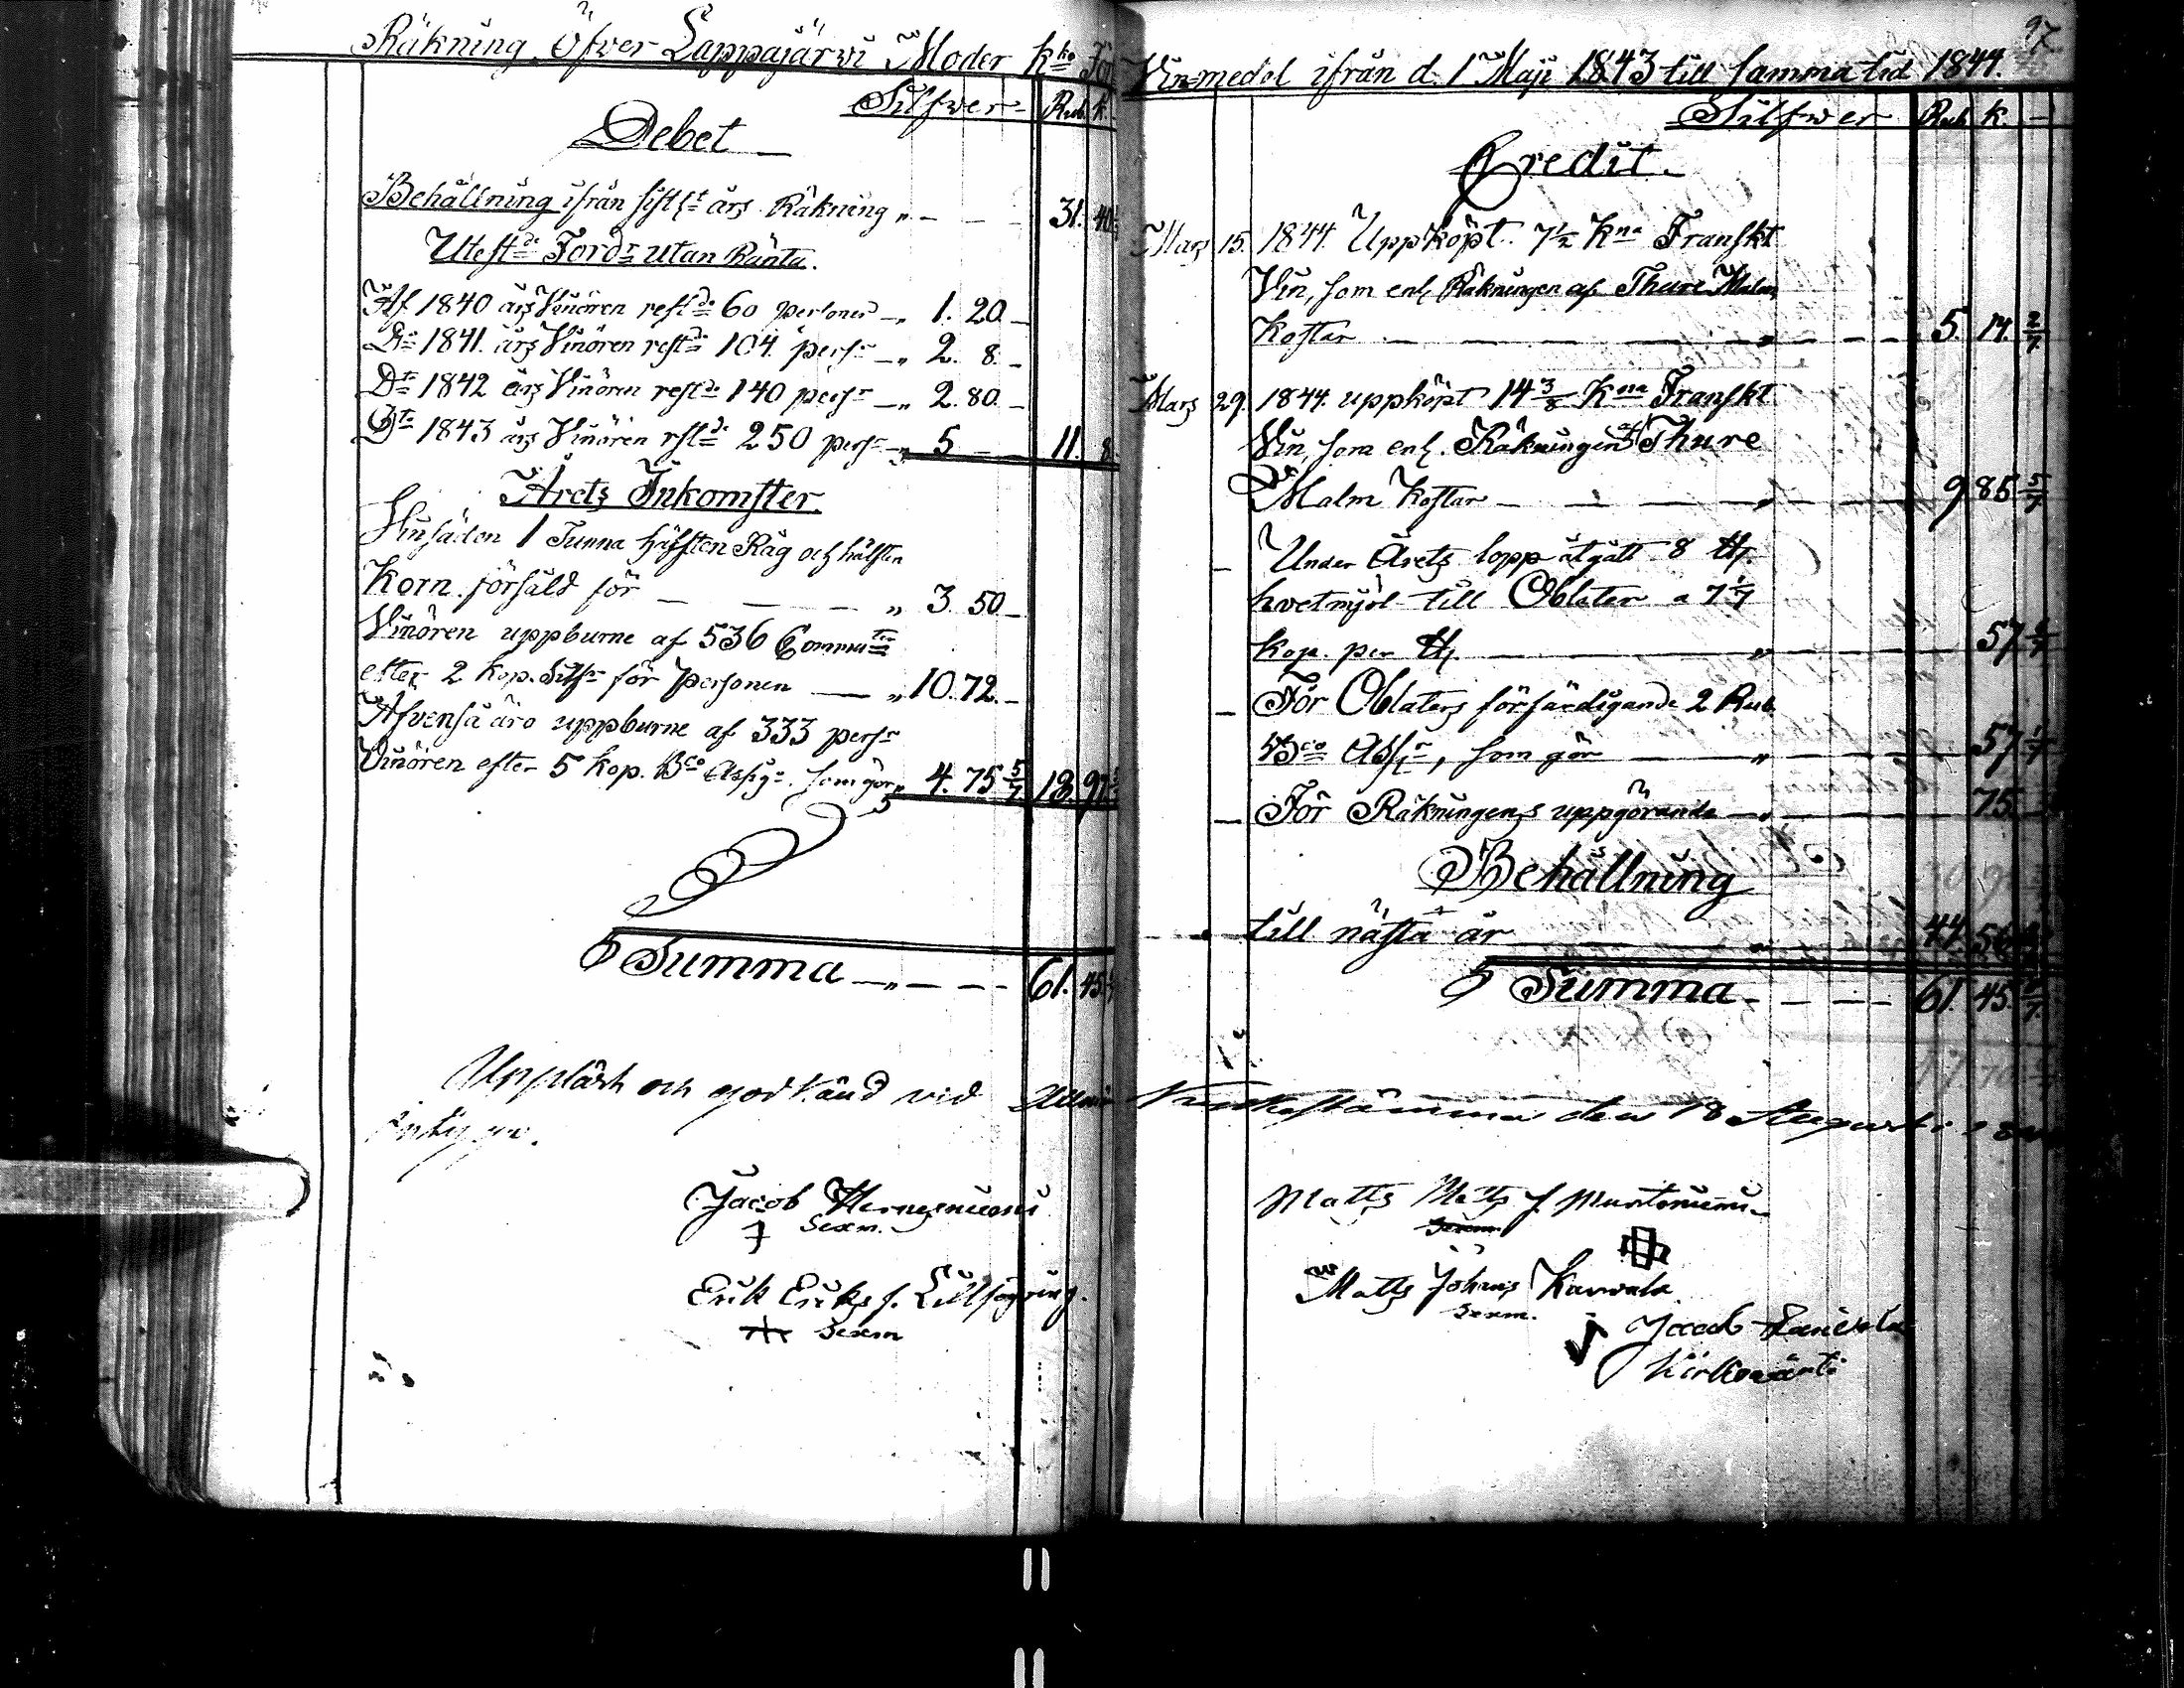 Räkning Öfver Lappajärwi Moder K:ko
Silfwer Rub. k.
Debet
Behållning ifrån sistl:t års Räkning „ 31. 40
Utest:de Ford:r utan Ränta.
Af 1840 års Vinören rest:de 60 personer „ 1. 20.
D:o 1841. års Vinören rest:de 104. pers:r „ 2. 8.
D:to 1842 års Vinören rest:de 140 pers:r „ 2. 80.
D:to 1843 års Vinören rst:de 250 pers:r „ 5 — 11. 8
Årets Inkomster.
Vinsäden 1 Tunna hälften Råg och hälften
Korn försåld för „ 3. 50
Vinören uppburne af 536 Commu:ter
efter 2 kop. Silf:r för personen „ 10. 72.
Äfvenså äro uppburne af 333 pers:r
Vinören efter 5 kop. B:co Assig:r som gör „ 4. 75 5/7 18. 97
Summa „ 61. 45
Uppläst och godkänd vid
Jacob
Sexm.
Erik Eriks s.
Sexm
97
Vin-medel ifrån d. 1 Maji 1843 till samma tid 1844.
Silfwer Rub. k.
Credit.
Mars 15. 1844. Uppköpt 7 1/2 K:na Franskt
Vin, som enl. Räkningen af Thure Malm
Kostar „ 5. 14. 2/7
Mars 29. 1844. uppköpt 14 3/8 K:na Franskt
Vin, som enl. Räkningen af Thure
Malm Kostar „ 9 85 5/7
Under Årets lopp åtgått 8 ℔.
hvetmjöl till Oblater a 7 1/7
kop. per ℔. „ 57 1/7
För Oblaters förfärdigande 2 Rub.
B:co Ass:r, som gör „ 57 1/7
För Räkningens uppgörande „ 75
Behållning
till nästa år „ 44 56
Summa 61. 45.
Kyrkostämma den 18 Augusti
Matts Matts s.
Sexm.
Matts Johans
Sexm.
Jacob